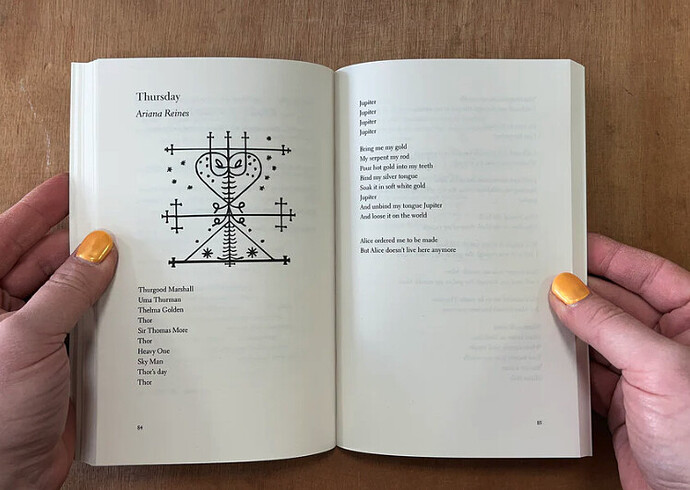 Thursday
Ariana Reines
Thurgood Marshall
Uma Thurman
Thelma Golden
Thor
Sir Thomas More
Thor
Heavy One
Sky Man
Thor's day
Thor
84
Jupiter
Jupiter
Jupiter
Jupiter
Bring me my gold
My serpent my rod
Pour hot gold into my teeth
Bind my silver tongue
Soak it in soft white gold
Jupiter
And unbind my tongue Jupiter
And loose it on the world
Alice ordered me to be made
But Alice doesn't live here anymore
85